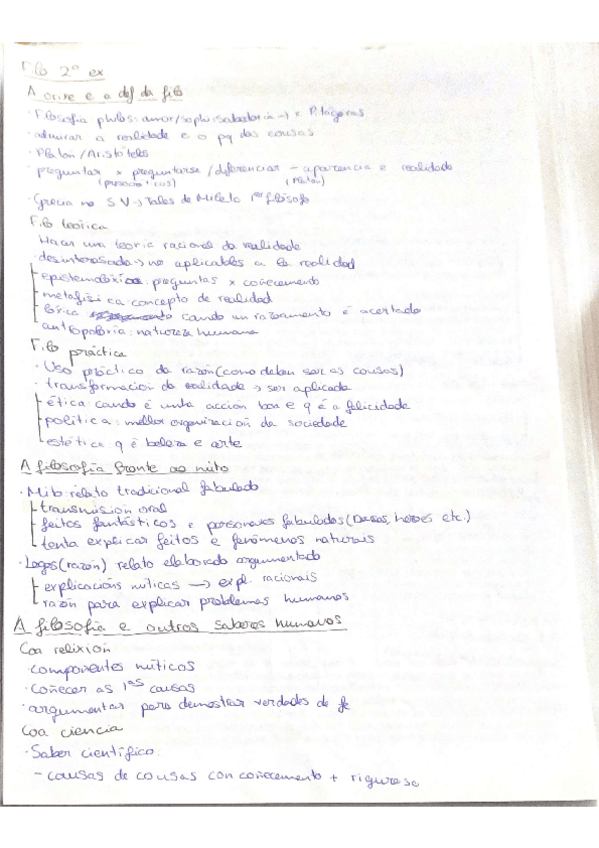 Filo 2º ex
A orixe e a def da filo
· Filosofía philos: amor/sophia: sabedoría → x Pitágoras
· admirar a realidade e o pq das cousas
· Platón/Aristóteles
· preguntar x preguntarse / diferenciar – aparencia e realidade
(Platón)
· Grecia no S V → Tales de Mileto 1er filósofo
Filo teórica
· Hacer unha teoría racional da realidade
· desinteresada → no aplicables a la realidad
epistemoloxía: preguntas x coñecemento
metafísica: concepto de realidad
lóxica cando un razoamento é acertado
antropoloxía: natureza humana
Filo práctica
· Uso práctico da razón (como deben ser as cousas)
· transformación da realidade → ser aplicada
ética: cando é unha acción boa e q é a felicidade
política: mellor organización da sociedade
estética q é beleza e arte
A filosofía fronte ao mito
· Mito: relato tradicional fabulado
transmisión oral
feitos fantásticos e personaxes fabulados (Deuses, heroes etc.)
tenta explicar feitos e fenómenos naturais
· Logos (razón) relato elaborado argumentado
explicacións míticas → expl. racionais
razón para explicar problemas humanos
A filosofía e outros saberes humanos
Coa relixión
· componentes míticos
· Coñecer as 1as causas
· argumentar para demostrar verdades de fe
Coa ciencia
· Saber científico:
– causas de cousas con coñecemento + riguroso